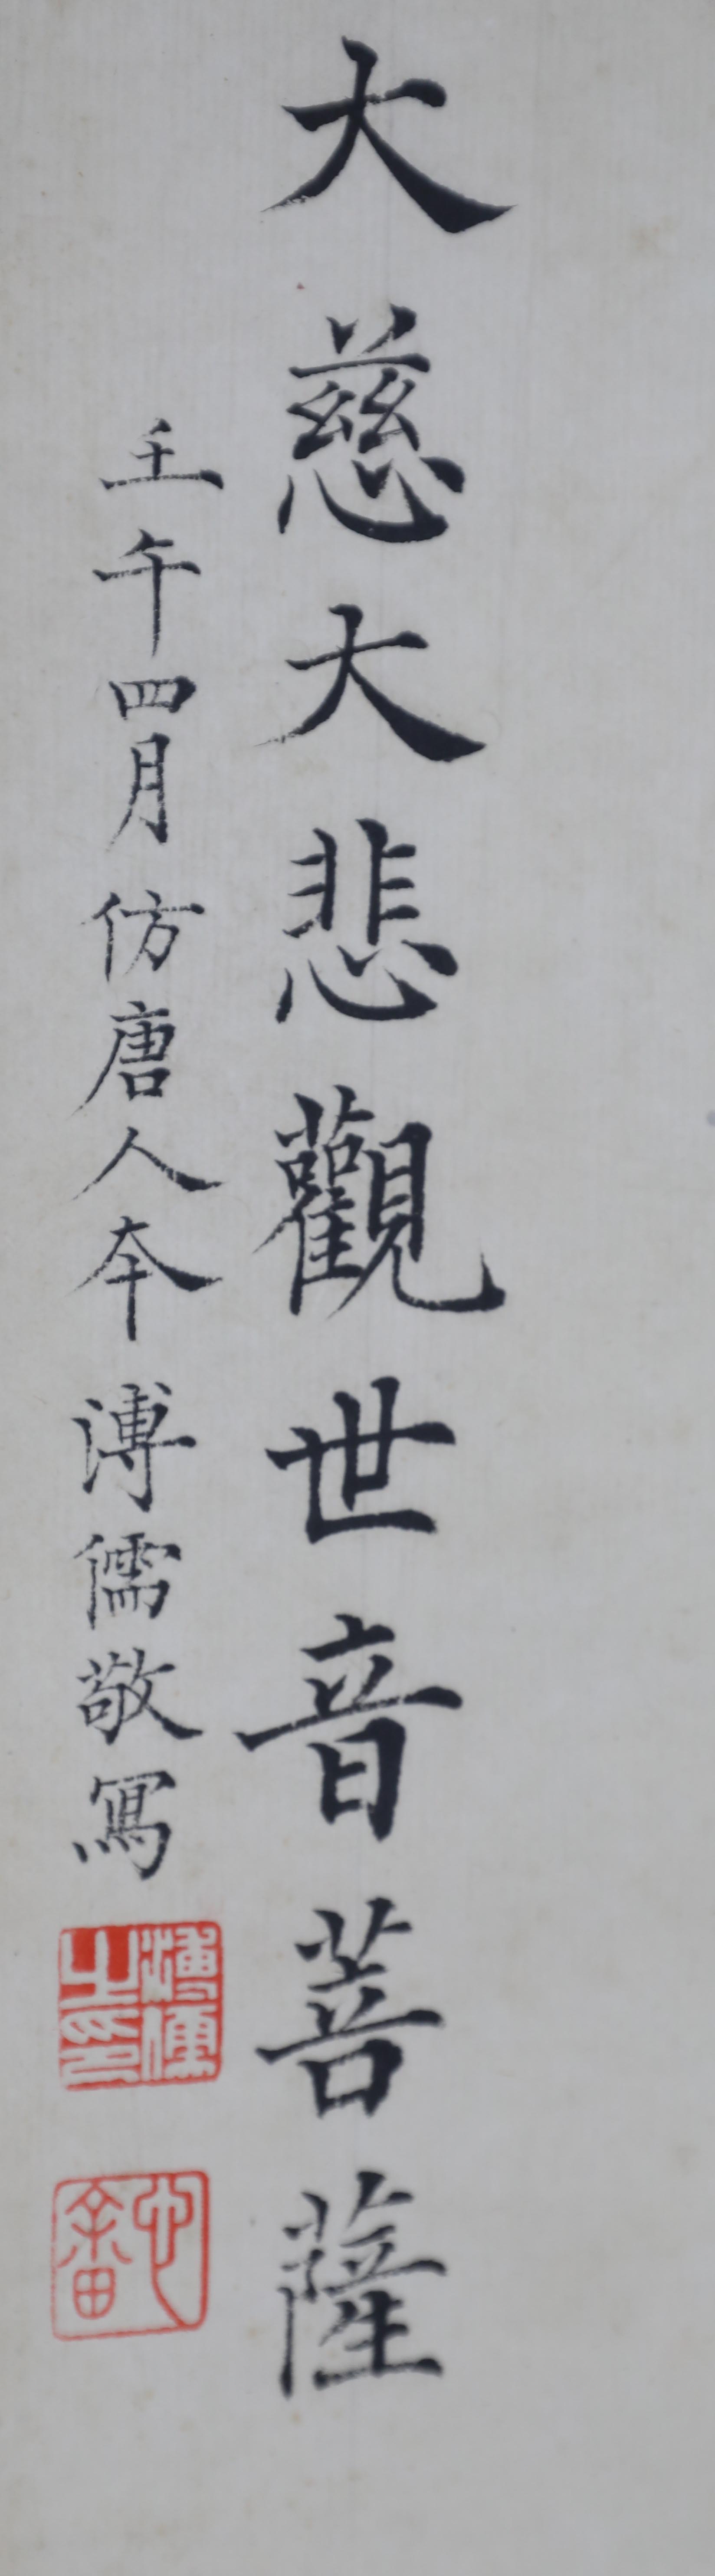 大慈大悲觀世音菩薩
壬午四月仿唐人本溥儒敬寫
溥儒之印